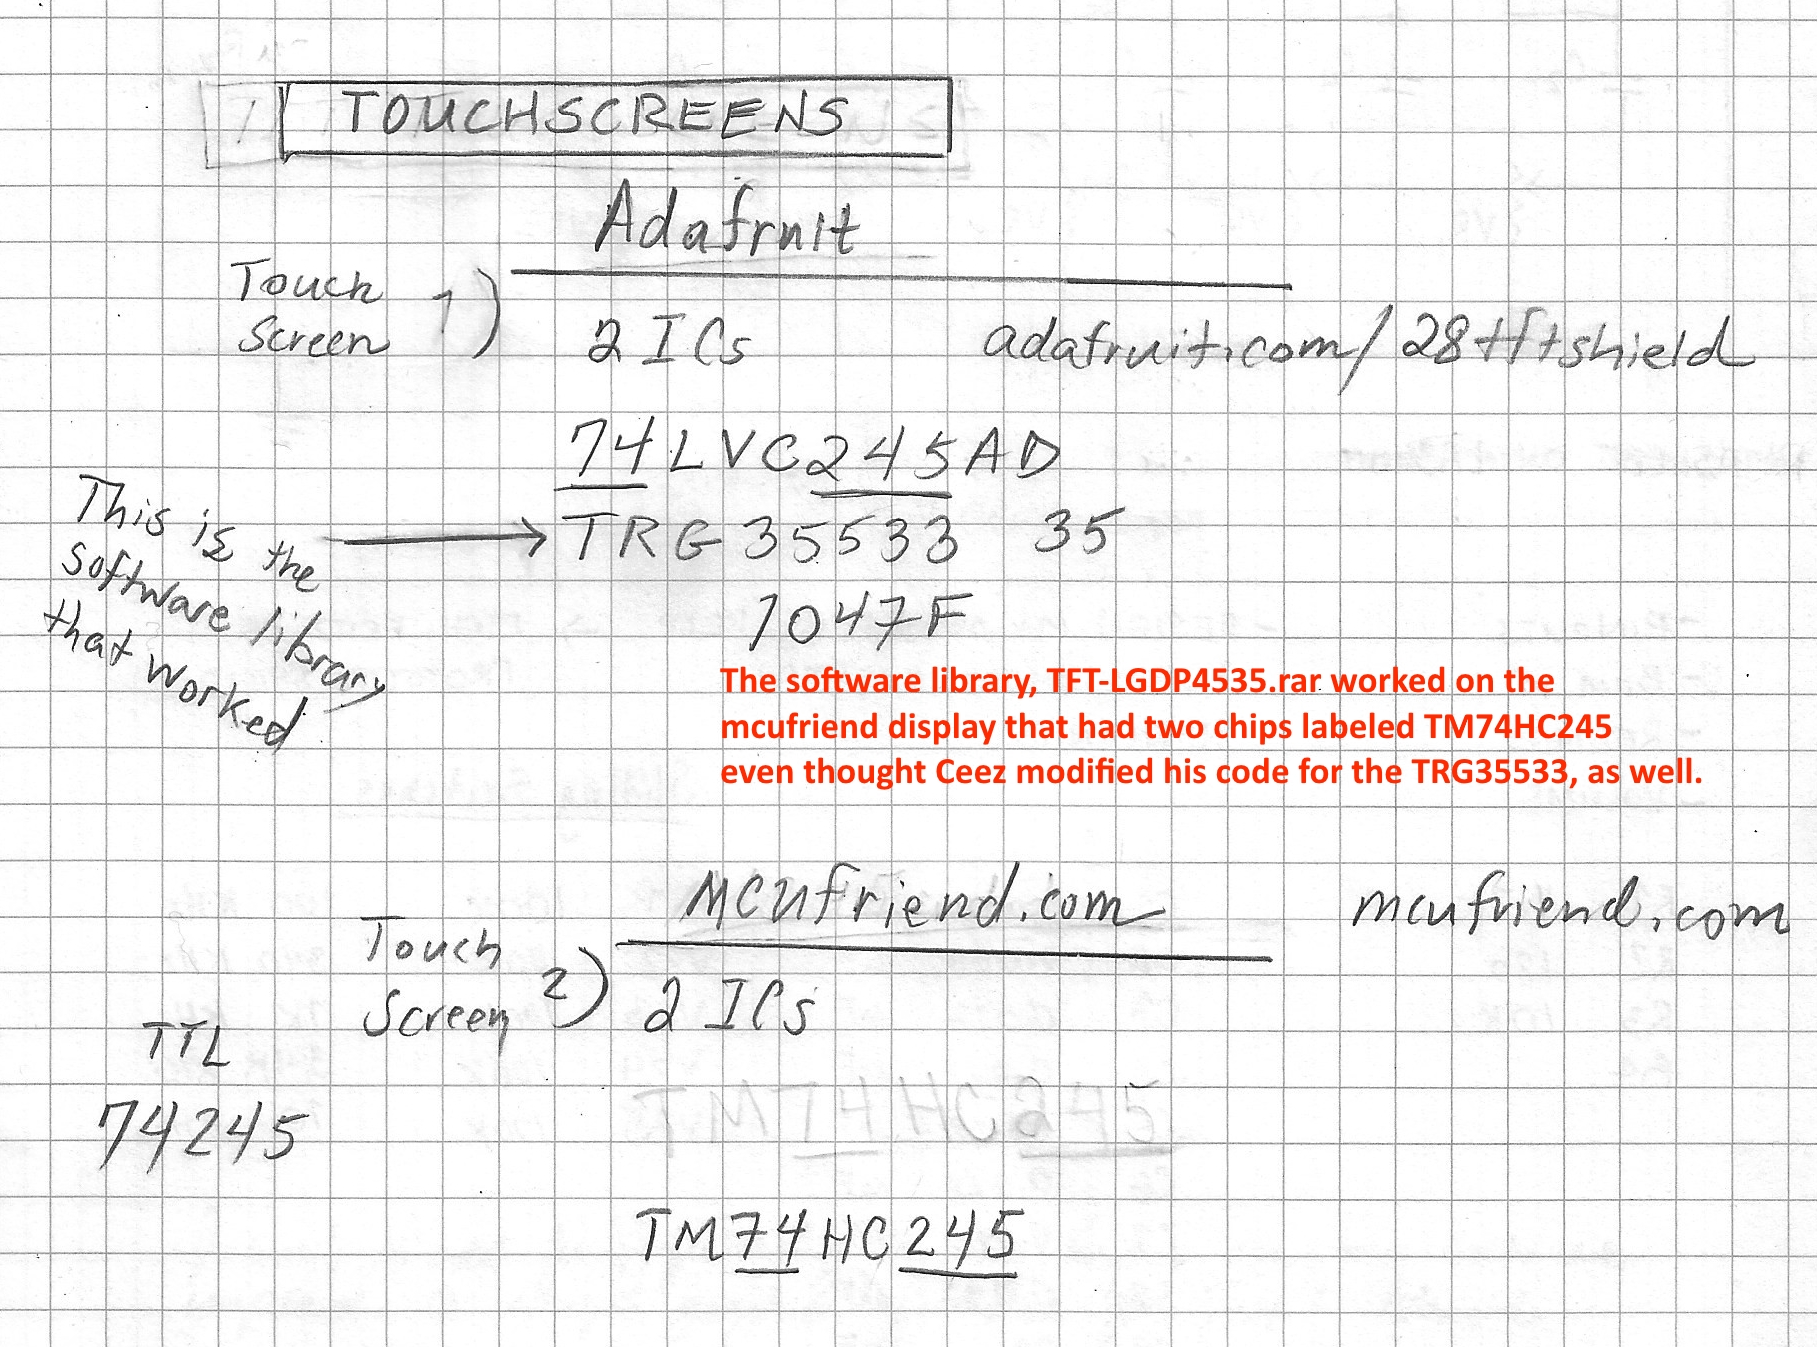 TOUCHSCREENS
Adafruit
Touch
Screen 1)
2 ICs adafruit.com/28tftshield
74LVC245AD
TRG35533 35
1047F
This is the
software library
that worked
The software library, TFT-LGDP4535.rar worked on the
mcufriend display that had two chips labeled TM74HC245
even thought Ceez modified his code for the TRG35533, as well.
MCUfriend.com mcufriend.com
Touch
Screen 2)
2 ICs
TTL
74245
TM74HC245
TM74HC245